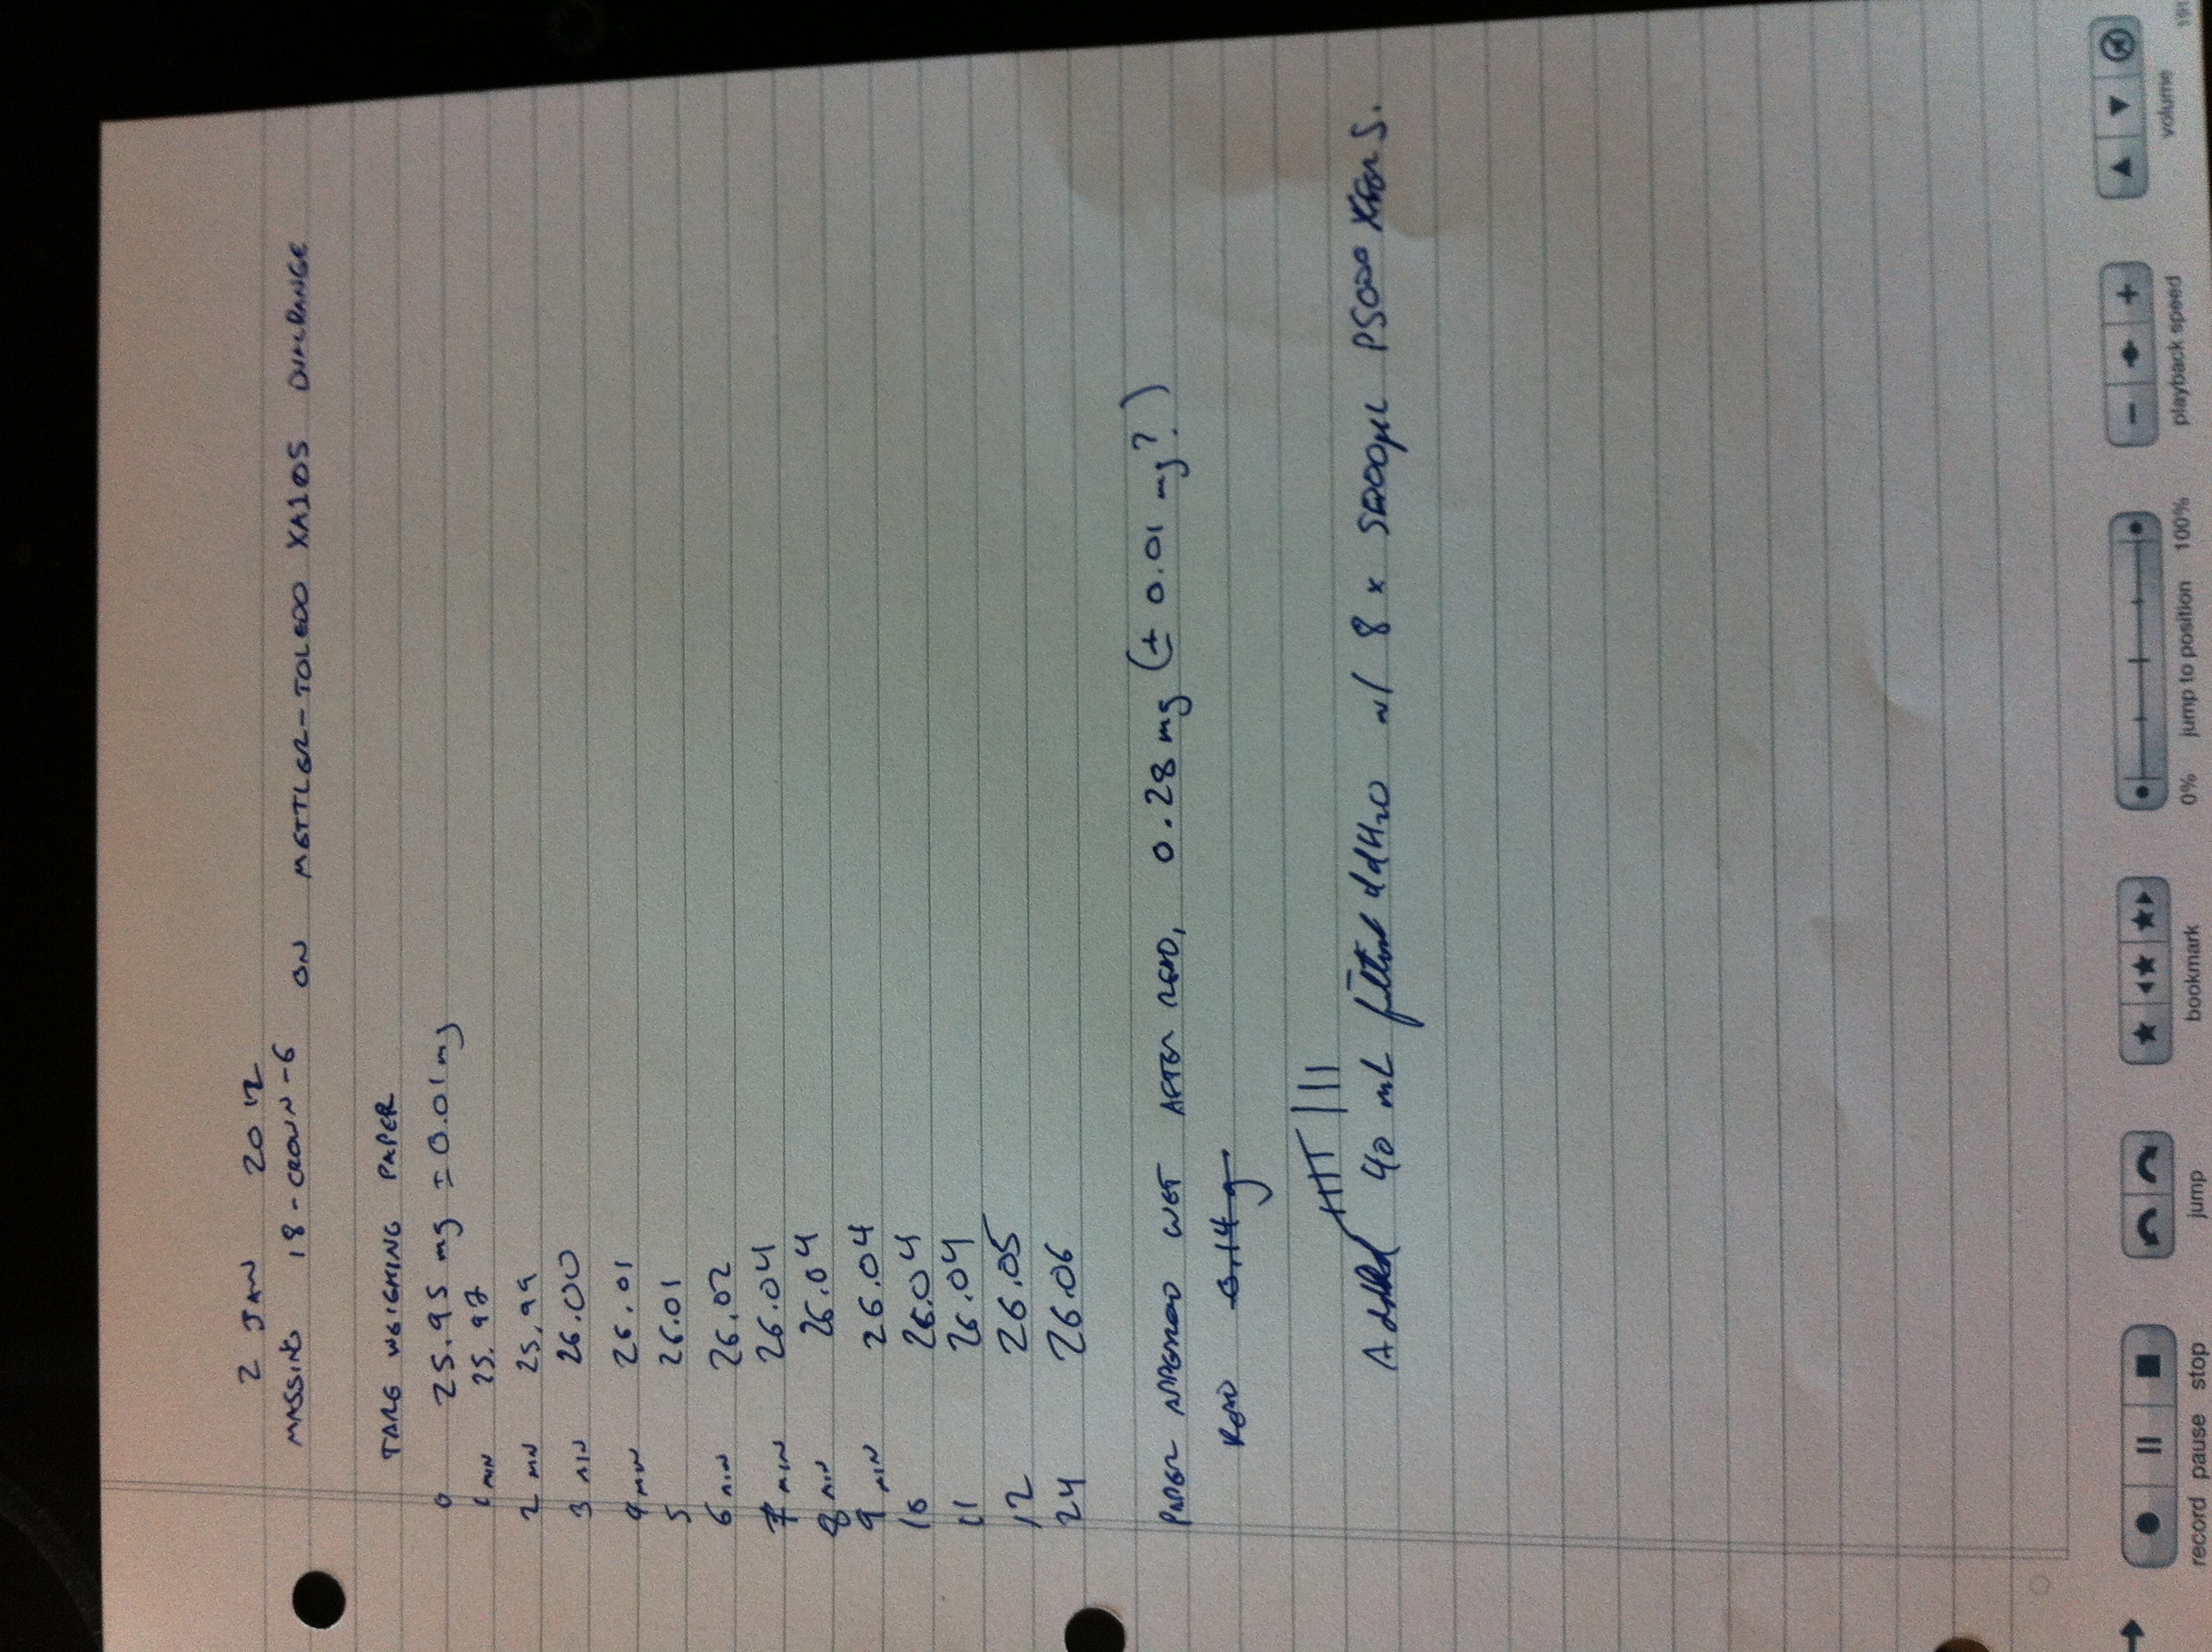 2 JAN 2012
MASSING 18-CROWN-6 ON METTLER-TOLEDO XA105 DUALRANGE
TARE WEIGHING PAPER
0 25.95 mg ± 0.01 mg
1 MIN 25.97
2 MIN 25.99
3 MIN 26.00
4 MIN 26.01
5 26.01
6 MIN 26.02
7 MIN 26.04
8 MIN 26.04
9 MIN 26.04
10 26.04
11 26.04
12 26.05
24 26.06
PAPER APPEARED WET AFTER READ, 0.28 mg (± 0.01 mg?)
READ 0.14 g
Added 40 mL filtered ddH2O w/ 8 x 5000µL P5000 XFERS.
record pause stop jump bookmark 0% jump to position 100% playback speed volume